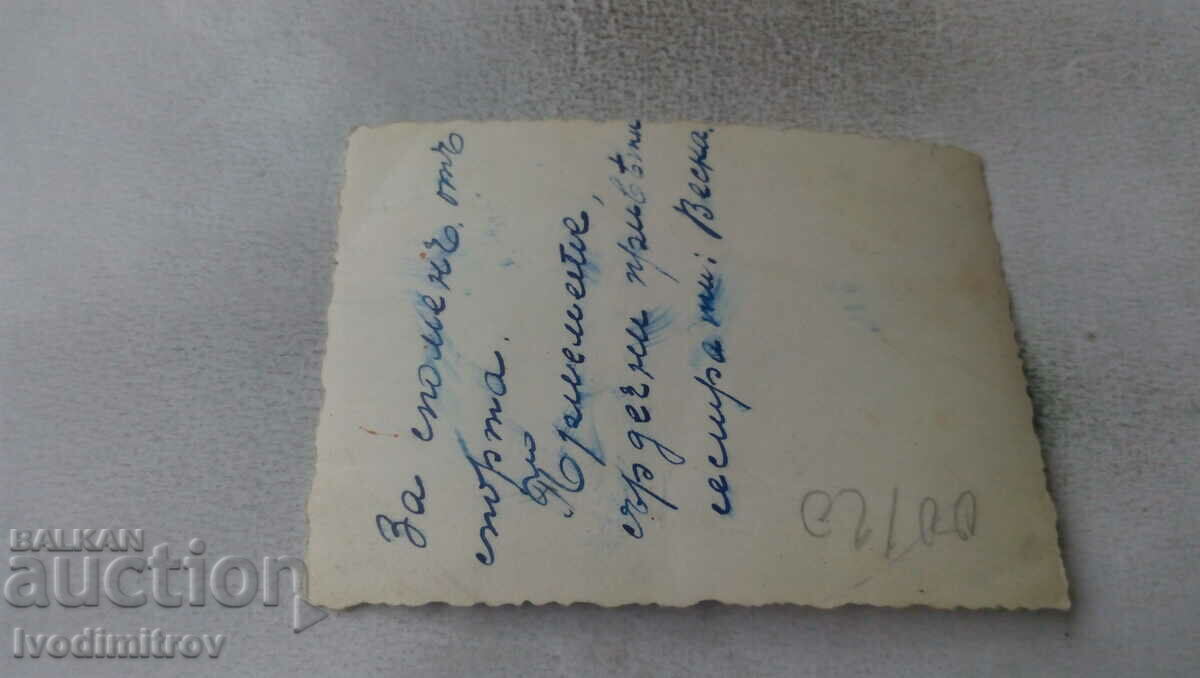 За споменъ отъ
спорта.
Приемете,
сърдечни привѣти
сестра ти: Веска.
00120
BALKAN
auction
Ivodimitrov